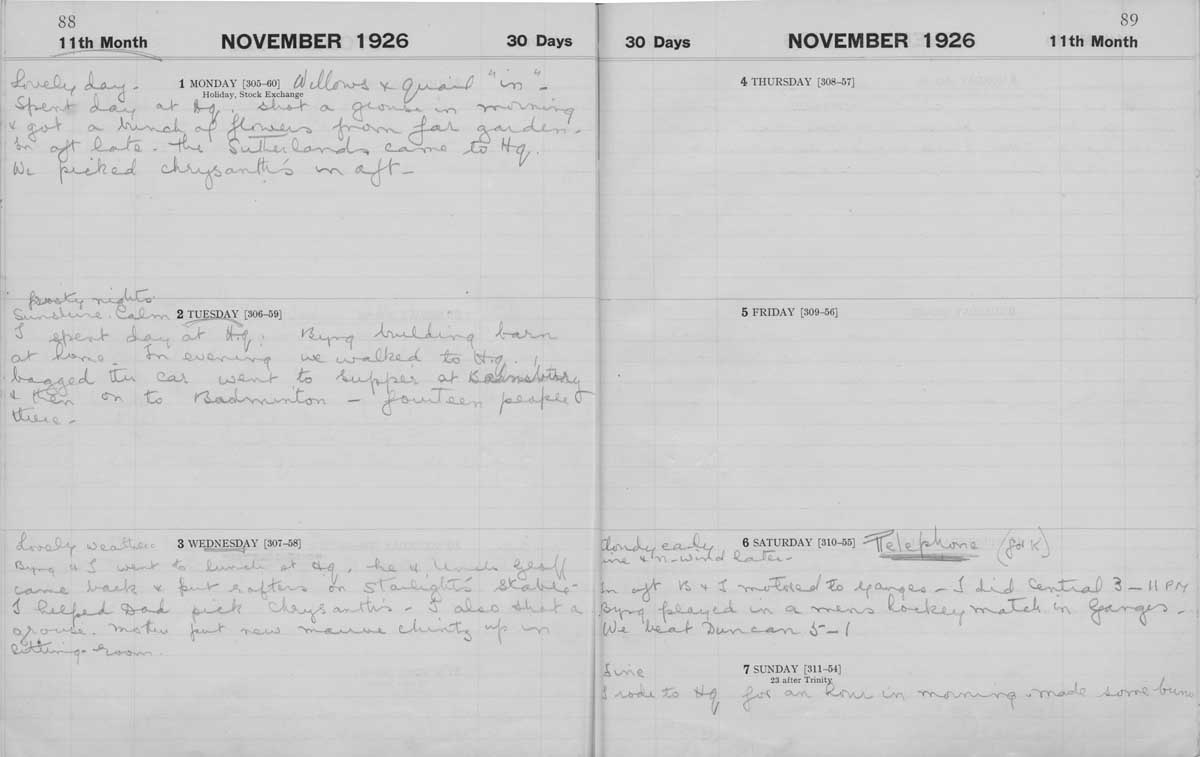 88
11th Month NOVEMBER 1926 30 Days
Lovely day. 1 MONDAY [305–60] Willows & quail "in" -
Holiday, Stock Exchange
Spent day at Hq. shot a grouse in morning
& got a bunch of flowers from far garden.
In aft late. the Sutherlands came to Hq.
We picked chrysanth's in aft -
frosty nights
Sunshine. Calm 2 TUESDAY [306–59]
I spent day at Hq. Byng building barn
at home. In evening we walked to Hq.,
bagged the car went to supper at
& then on to Badminton – fourteen people
there -
Lovely weather 3 WEDNESDAY [307–58]
Byng & I went to at Hq. he & Uncle Geoff
came back & put rafters on Starlight's stable -
I helped Dad pick Chrysanths - I also shot a
grouse. Mother put new mauve chintz up in
sitting-room.
89
30 Days NOVEMBER 1926 11th Month
4 THURSDAY [308–57]
5 FRIDAY [309–56]
Cloudy early 6 SATURDAY [310–55] Telephone (for K)
fine & N-wind later -
In aft B & I motored to Ganges – I did Central 3 – 11 PM
Byng played in a mens hockey match in Ganges -
We beat Duncan 5–1
Fine 7 SUNDAY [311–54]
23 after Trinity
I rode to Hq for an hour in morning. made some buns